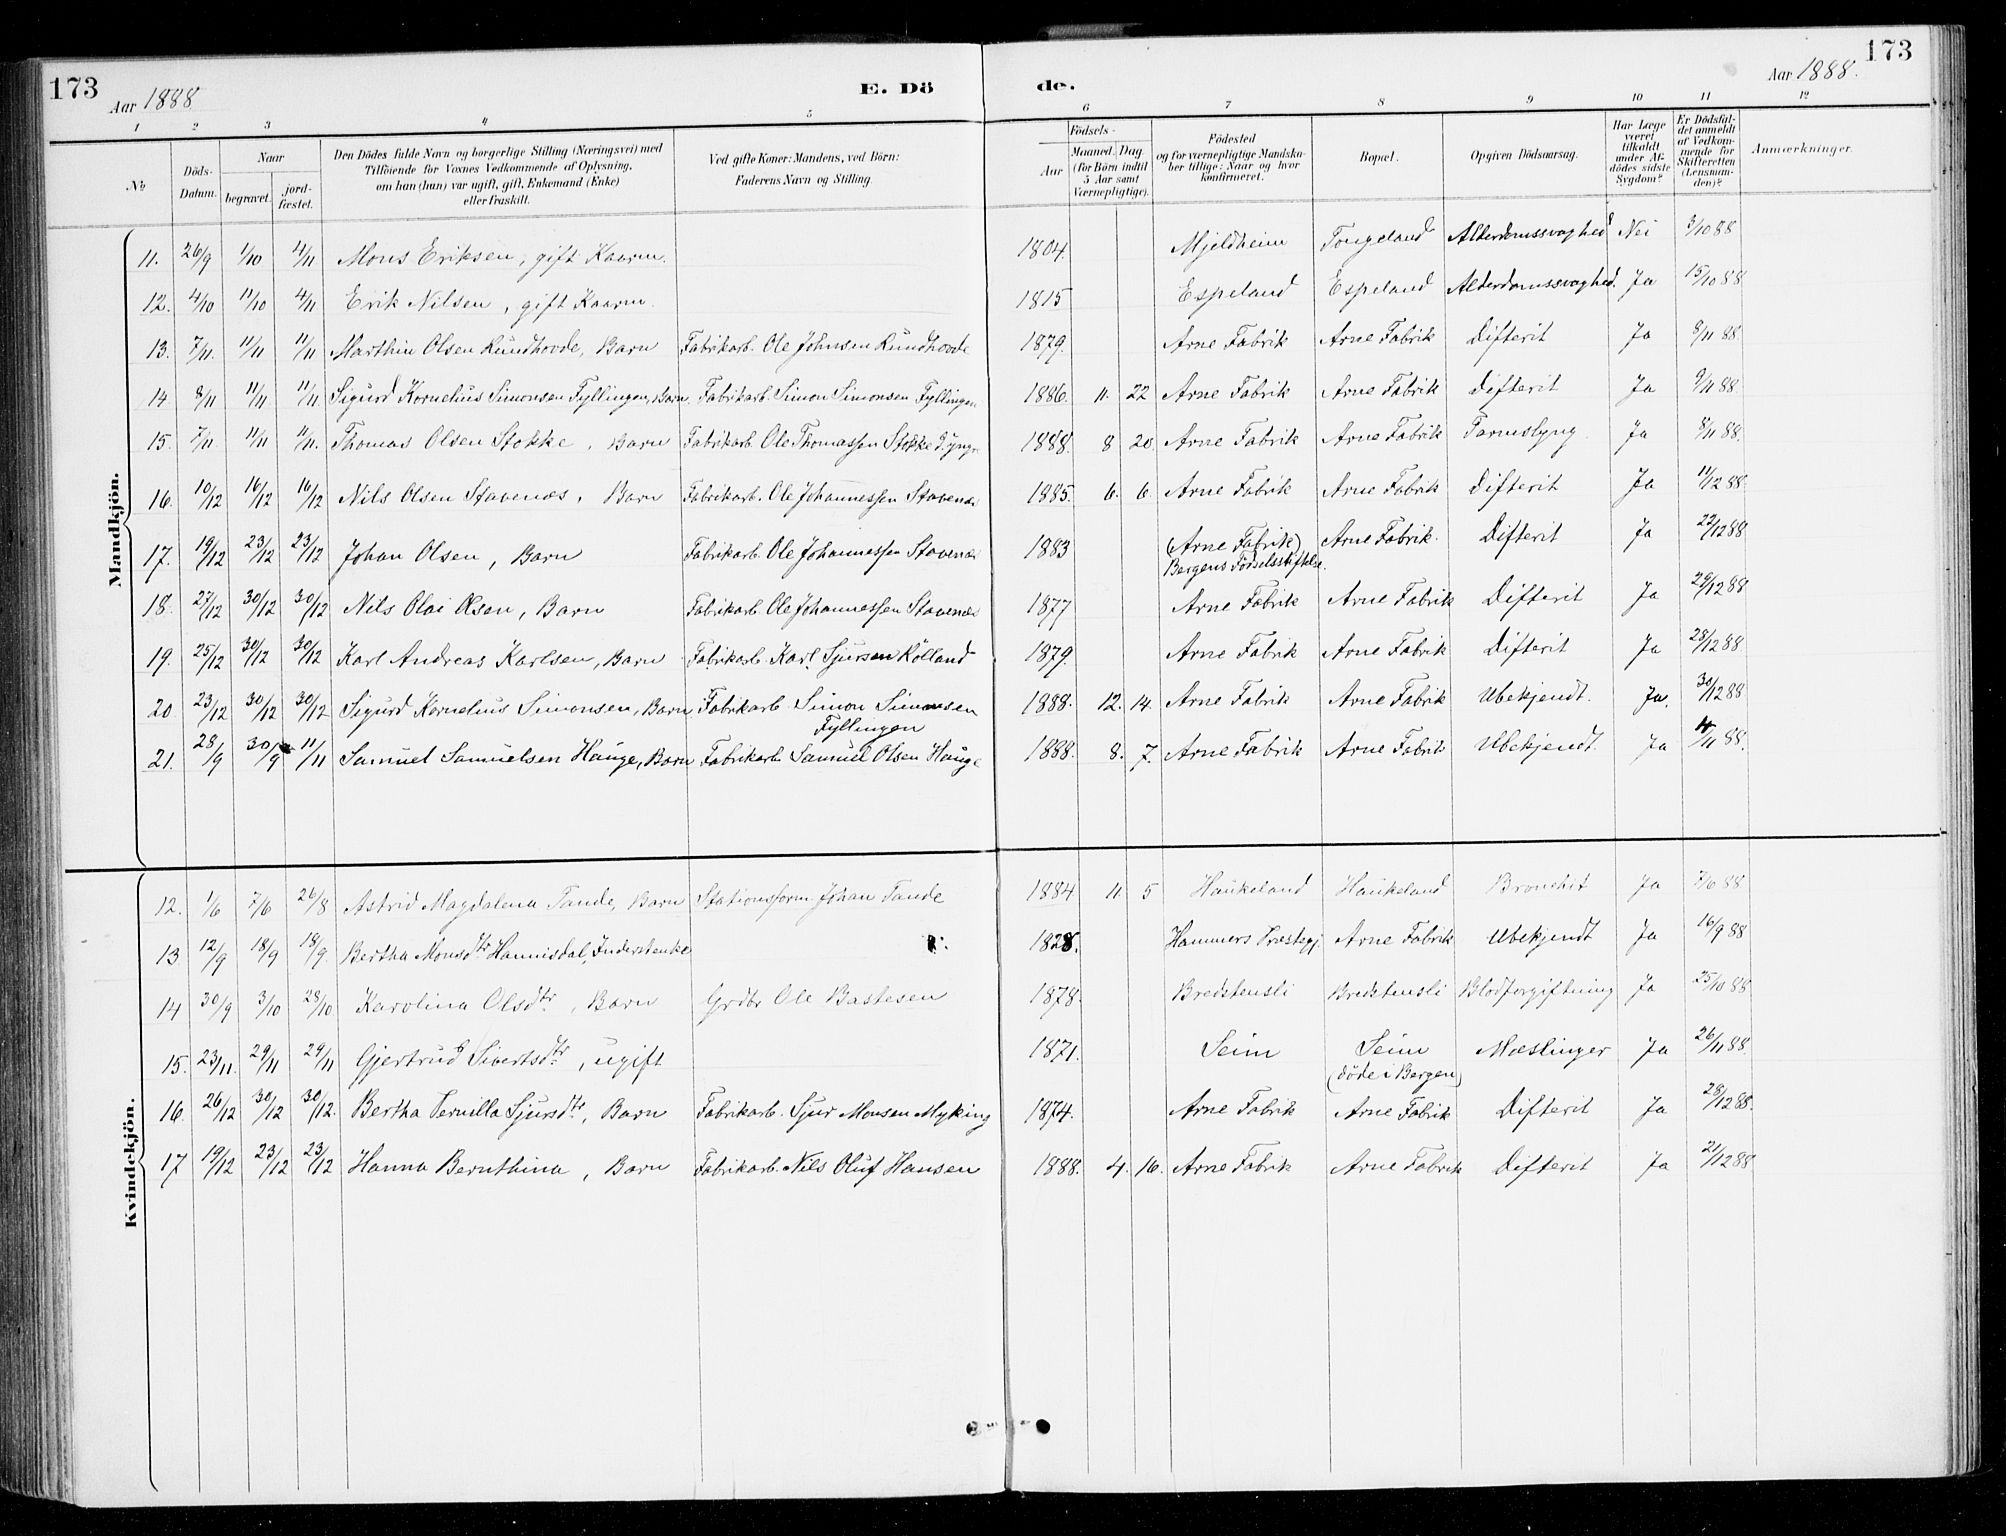 173
Aar 1888
E. Dö
de.
Aar 1888.
173
1 2 3 4 5 6 7 8 9 10 11 12
№
Döds-Datum.
Naar
begravet.
jordfæstet.
Den Dödes fulde Navn og borgerlige Stilling (Næringsvei) med
Tilföiende for Voxnes Vedkommende af Oplysning,
om han (hun) var ugift, gift, Enkemand (Enke)
eller fraskilt.
Ved gifte Koner: Mandens, ved Börn:
Faderens Navn og Stilling.
Födsels-
Aar
Maaned. Dag
(for Börn indtil
5 Aar samt
Værnepligtige).
Födested
og for værnepligtige Mandskaber tillige: Naar og hvor
konfirmeret.
Bopæl.
Opgiven Dödsaarsag.
Har Læge
været
tilkaldt
under Afdödes sidste
Sygdom?
Er Dödsfaldet anmeldt
af Vedkommende for
Skifteretten
(Lensmanden)?
Anmærkninger.
Mandkjön.
11. 26/9 1/10 4/11 Mons Eriksen, gift Kaarm. 1804. Mjeldheim Tongeland Alderdomssvaghed Nei 3/10 88
12. 4/10 11/10 4/11 Erik Nilsen, gift Kaarm. 1815 Espeland Espeland Alderdomssvaghed. Ja 15/10 88
13. 7/11. 11/11 11/11 Marthin Olsen Rundhovde, Barn Fabrikarb. Ole Johnsen Rundhovde 1879. Arne Fabrik Arne Fabrik Difterit Ja 8/11 88
14. 8/11 11/11 11/11. Sigurd Kornelius Simonsen Fyllingen, Barn. Fabrikarb. Simon Simonsen Fyllingen 1886. 11. 22 Arne Fabrik Arne Fabrik Difterit Ja 9/11 88.
15. 7/11. 11/11 11/11. Thomas Olsen Stokke, Barn Fabrikarb. Ole Thomassen Stokke 1888. 8 20. Arne Fabrik Arne Fabrik Ja 8/11 88.
16. 10/12 16/12 16/12 Nils Olsen Stavenæs, Barn Fabrikarb. Ole Johannessen Stavenæs 1885. 6. 6. Arne Fabrik Arne Fabrik Difterit Ja 11/12 88.
17. 19/12 23/12 23/12 Johan Olsen, Barn Fabrikarb. Ole Johannessen Stavenæs 1883 (Arne Fabrik) Arne Fabrik. Difterit Ja 22/12 88
Bergens Födselsstiftelse.
18. 27/12 30/12 30/12 Nils Olai Olsen, Barn Fabrikarb. Ole Johannessen Stavenæs 1877 Arne Fabrik Arne Fabrik Difterit Ja 29/12 88
19. 25/12 30/12 30/12 Karl Andreas Karlsen, Barn Fabrikarb. Karl Sjursen Kolland 1879. Arne Fabrik Arne Fabrik Difterit Ja 28/12 88
20 23/12 30/12 30/12 Sigurd Kornelius Simonsen, Barn Fabrikarb. Simon Simonsen 1888. 12. 14. Arne Fabrik Arne Fabrik Ubekjendt. Ja. 30/12 88
Fyllingen
21. 28/9 30/9 11/11 Samuel Samuelsen Hauge, Barn Fabrikarb. Samuel Olsen Hauge 1888. 8. 7. Arne Fabrik Arne Fabrik Ubekjendt. Ja 11/11 88.
Kvindekjön.
12. 1/6 7/6 26/8 Astrid Magdalena Tande, Barn Stationsform. Johan Tande 1884 11 5 Haukeland Haukeland Bronchit Ja 7/6 88
13 12/9 18/9 18/9. Bertha Monsdtr Hannisdal, Inderstenke 1828. Hammers Præstegj. Arne Fabrik Ubekjendt Ja 16/9 88
14 30/9 3/10 28/10 Karolina Olsdtr, Barn Grdbr Ole Bastesen 1878. Bredstensli Bredstensli Blodforgiftning Ja 25/10 88
15. 23/11. 29/11 29/11 Gjertrud Sivertsdtr, ugift 1871. Seim Seim Mæslinger Ja 26/11 88.
(döde i Bergen)
16. 26/12 30/12 30/12. Bertha Pernilla Sjursdtr, Barn Fabrikarb. Sjur Monsen Myking 1874. Arne Fabrik Arne Fabrik Difterit Ja 28/12 88.
17 19/12 23/12 23/12 Hanna Bernthina, Barn Fabrikarb. Nils Oluf Hansen 1888. 4. 16. Arne Fabrik Arne Fabrik Difterit Ja 21/12 88